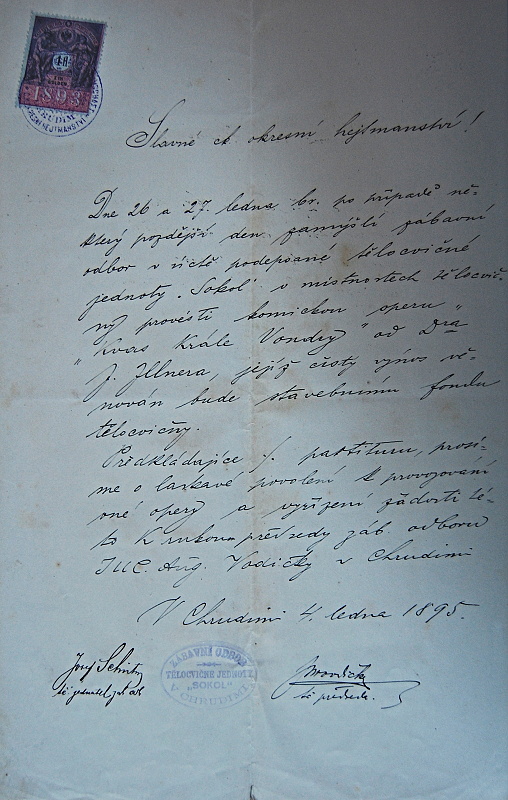 1898
CHRUDIM
Slavné ck. okresní hejtmanství!
Dne 26 a 27. ledna br. po případě ně-
který pozdější den zamýšlí zábavní
odbor v úctě podepsané tělocvičné
jednoty "Sokol" v místnostech tělocvič-
ny provésti komickou operu
"Kvas krále Vondry" od Dra
J. Illnera, jejíž čistý výnos vě-
nován bude stavebnímu fondu
tělocvičny.
Předkládajíce ⁒ partituru, prosí-
me o laskavé povolení k provozování
oné opery a vyřízení žádosti té-
to k rukoum předsedy záb. odboru
JUC. Aug. Vodičky v Chrudimi
V Chrudimi 4. ledna 1895.
Josef
t. č. jednatel
ZÁBAVNÍ ODBOR
TĚLOCVIČNÉ JEDNOTY
"SOKOL"
V CHRUDIMI
Vodička
t. č. předseda.